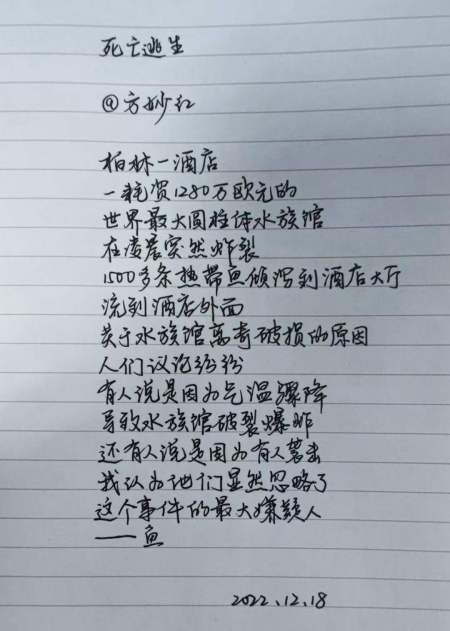 死亡逃生
@方妙红
柏林一酒店
一耗资1280万欧元的
世界最大圆柱体水族馆
在凌晨突然炸裂
1500多条热带鱼倾泻到酒店大厅
流到酒店外面
关于水族馆离奇破损的原因
人们议论纷纷
有人说是因为气温骤降
导致水族馆破裂爆炸
还有人说是因为有人袭击
我认为他们显然忽略了
这个事件的最大嫌疑人
——鱼
2022.12.18